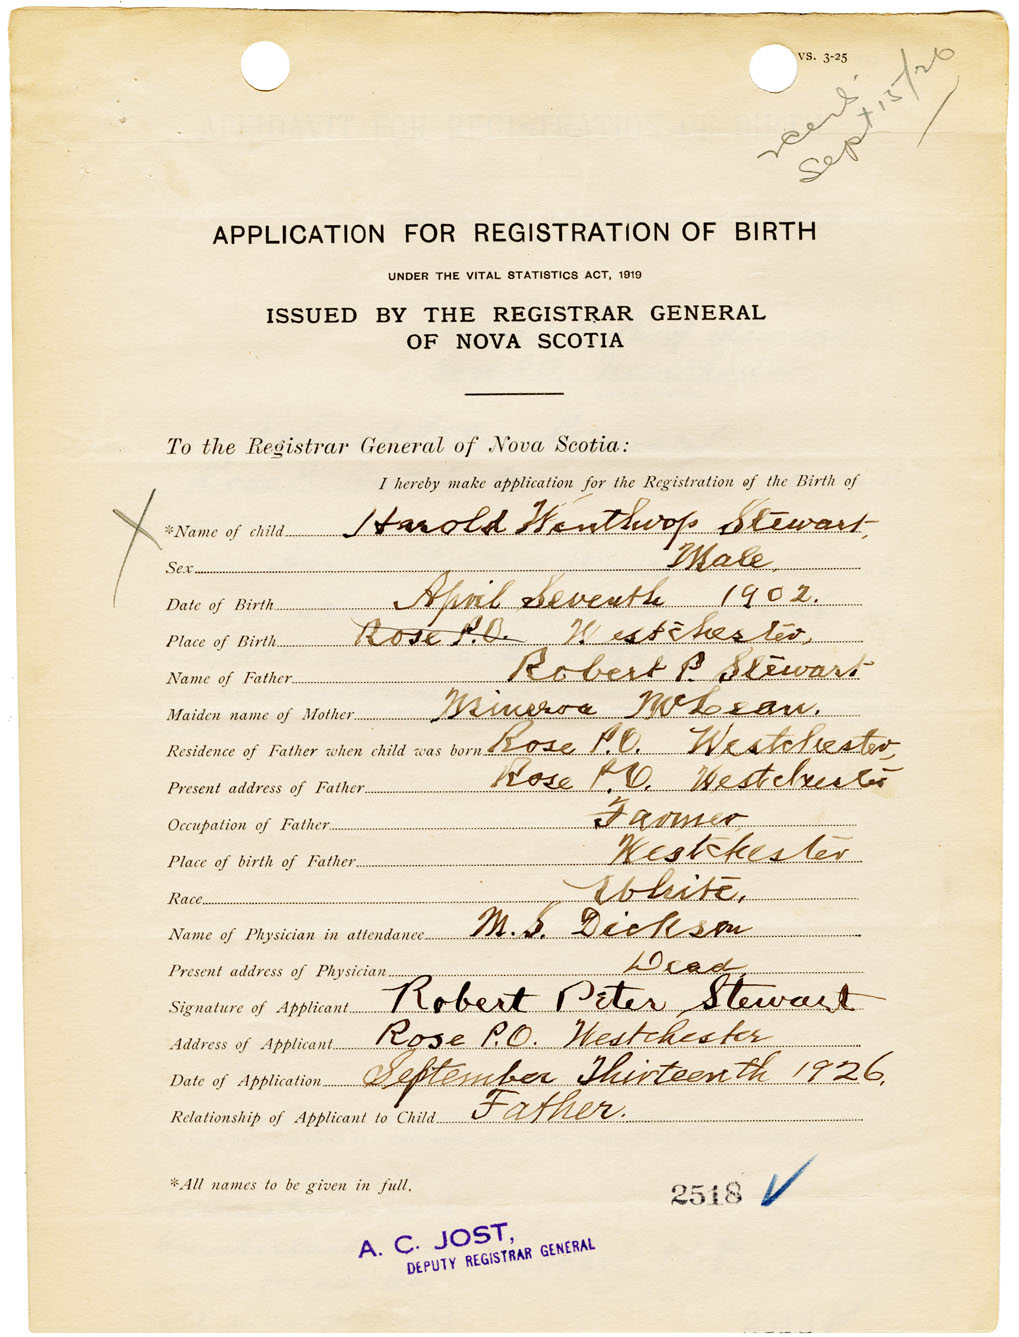 VS. 3-25
Sept 15/26
APPLICATION FOR REGISTRATION OF BIRTH
UNDER THE VITAL STATISTICS ACT, 1919
ISSUED BY THE REGISTRAR GENERAL
OF NOVA SCOTIA
To the Registrar General of Nova Scotia:
I hereby make application for the Registration of the Birth of
*Name of child Harold Winthrop Stewart,
Sex Male,
Date of Birth April Seventh 1902.
Place of Birth Rose P.O. Westchester,
Name of Father Robert P. Stewart
Maiden name of Mother Minerva McLean.
Residence of Father when child was born Rose P.O. Westchester,
Present address of Father Rose P.O. Westchester
Occupation of Father Farmer
Place of birth of Father Westchester
Race White.
Name of Physician in attendance M. S. Dickson
Present address of Physician Dead
Signature of Applicant Robert Peter Stewart
Address of Applicant Rose P.O. Westchester
Date of Application September Thirteenth 1926.
Relationship of Applicant to Child Father.
*All names to be given in full.
2518
A. C. JOST,
DEPUTY REGISTRAR GENERAL